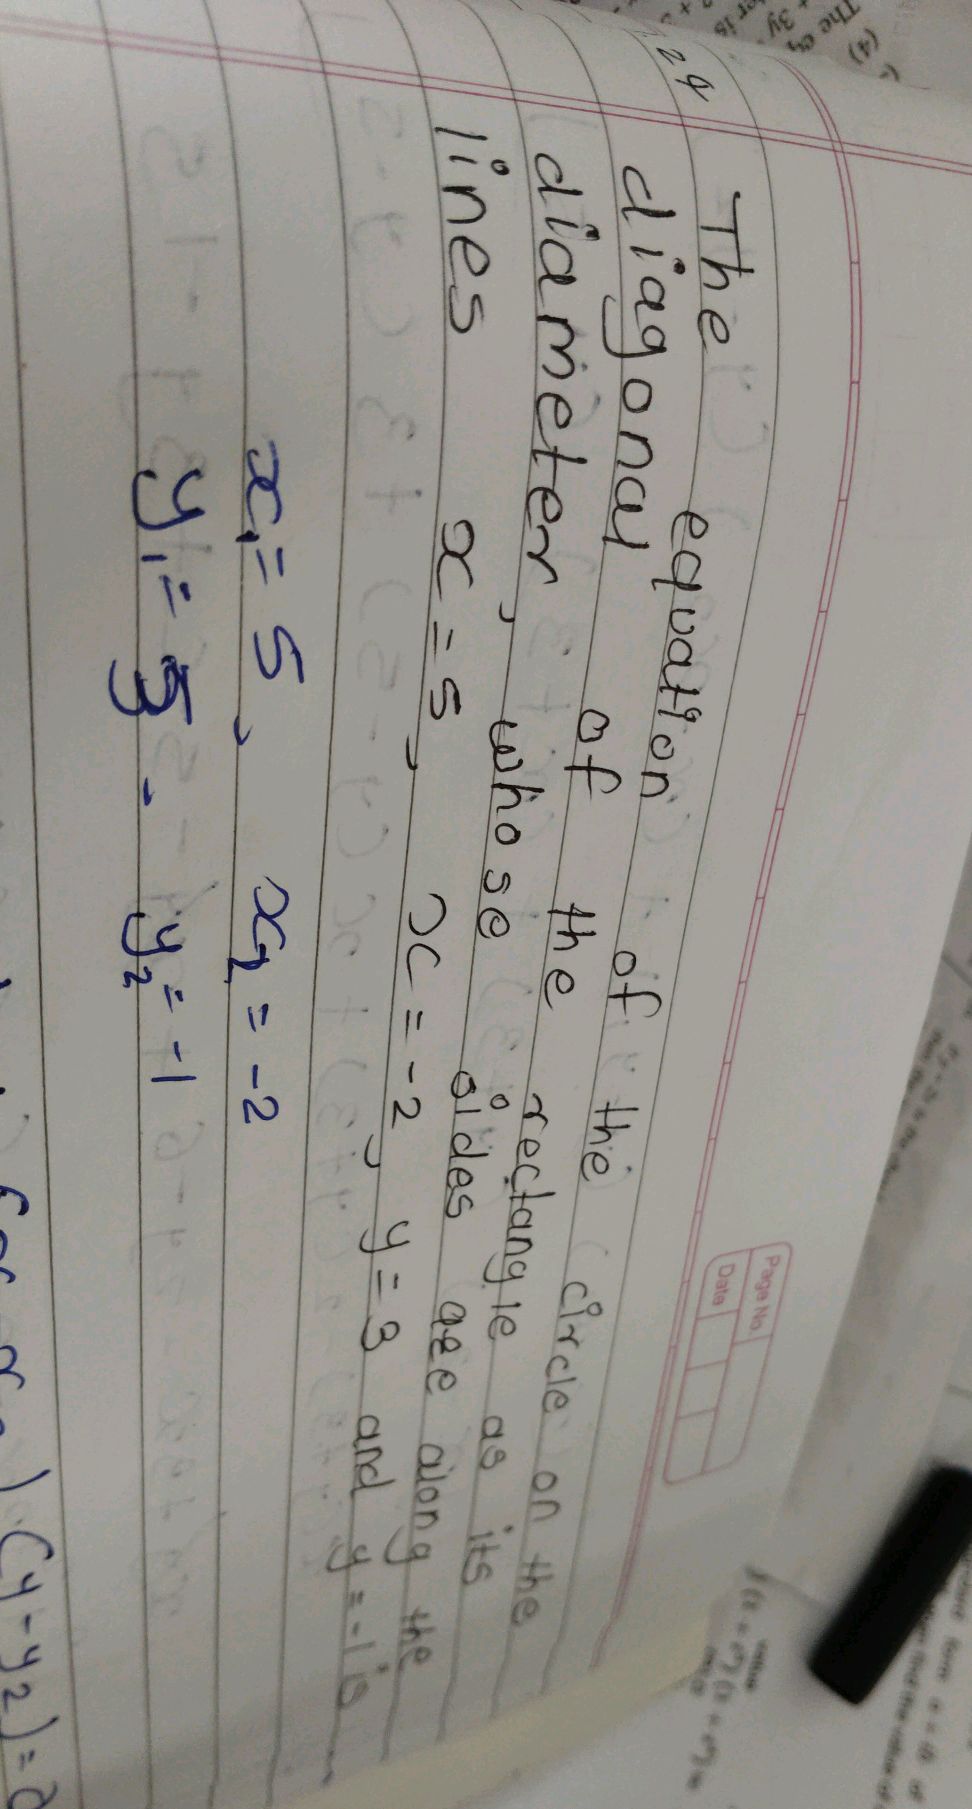 Page No.
Date
24 The equation of the circle on the
diagonal of the rectangle as its
diameter, whose sides are along the
lines x = 5, x = -2, y = 3 and y = -1 is
x₁ = 5, x₂ = -2
y₁ = 3, y₂ = -1
(y - y₂) = 0